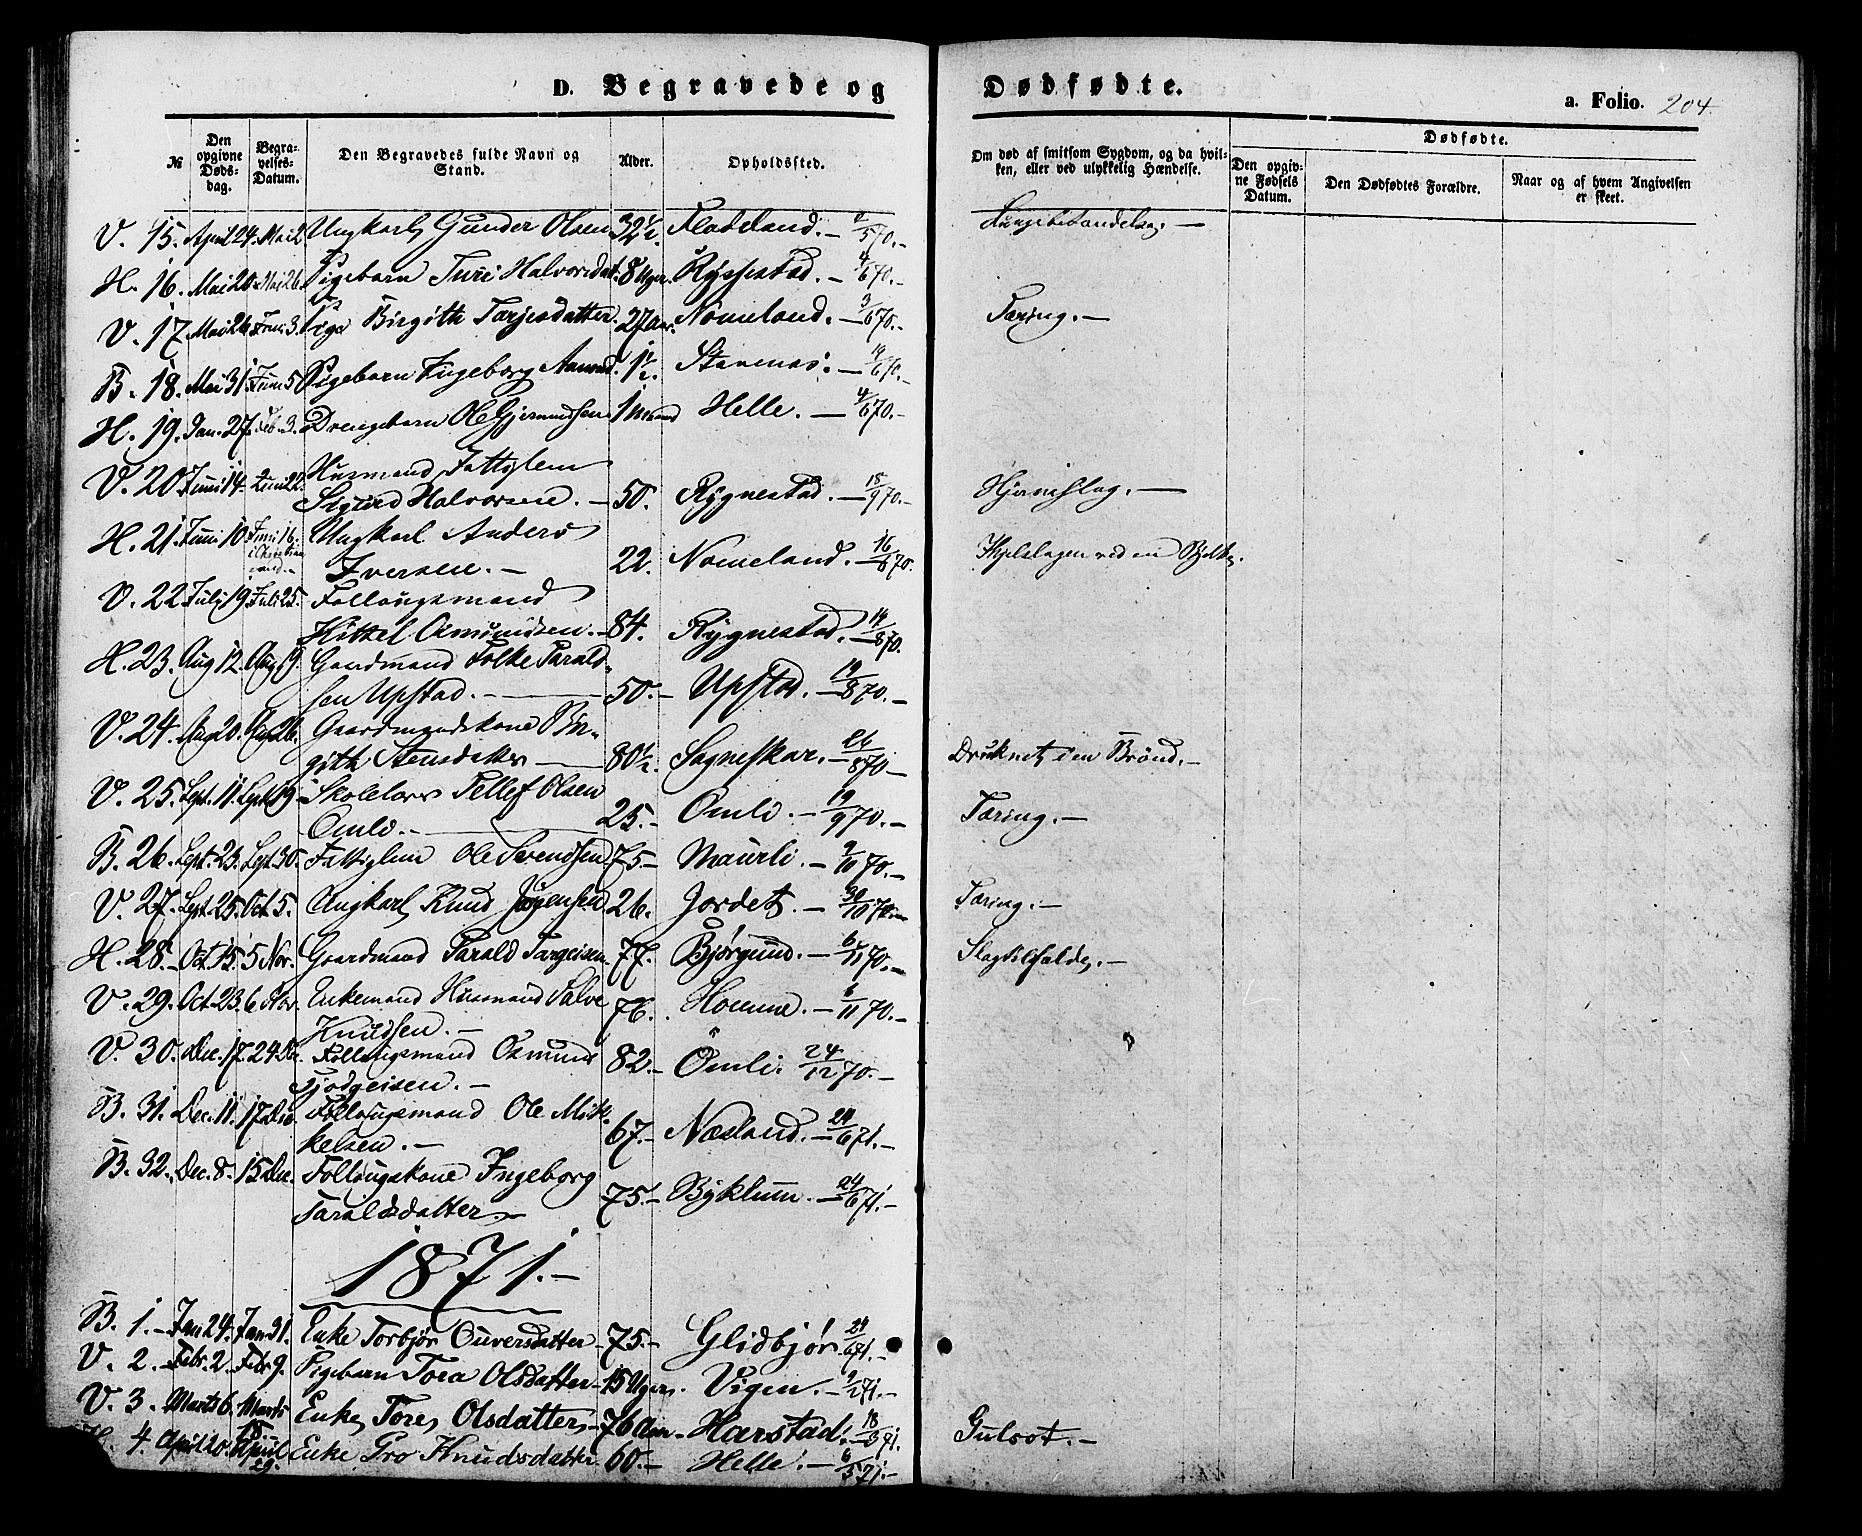 D. Begravede og Dødfødte.
a. Folio. 204.
№ Den opgivne Dødsdag. Begravelses-Datum. Den Begravedes fulde Navn og Stand. Alder. Opholdssted. Om død af smitsom Sygdom, og da hvilken, eller ved ulykkelig Hændelse. Dødfødte. Den opgivne Fødsels Datum. Den Dødfødtes Forældre. Naar og af hvem Angivelsen er skeet.
V. 15. April 24. Mai 2. Ungkarl Gunder Olsen 32½. Flateland. – 2/5 70. –
H. 16. Mai 20. Mai 26. Pigebarn Turi Halvorsdat. 8 Uger. Rysstad. – 4/6 70. –
V. 17. Mai 26. Juni 3. Pige Birgith Tarjesdatter. 27 Aar. Nomeland. – 3/6 70. – Tæring. –
B. 18. Mai 31. Juni 5. Pigebarn Ingeborg 1½. Stavenes. – 19/6 70. –
H. 19. Jan. 27. Feb. 3. Drengebarn Ole Gjermundsen 1 Maaned Helle. – 4/6 70. –
V. 20. Juni 14. Juni 22. Husmand Fattiglem
Sigurd Halvorsen. – 50. Rygnestad. – 18/9 70. – Hjerneslag. –
H. 21. Juni 10. Juni 16. Ungkarl Anders
Iversen. – 22. Nomeland. – 16/8 70. Ihjelslagen ved en Bjelke.
V. 22. Juli 19. Juli 25. Follougsmand
Kittel Osmundsen. – 84. Rygnestad. – 14/8 70.
H. 23. Aug 12. Aug 19. Gaardmand Folke Tarald-
sen Upstad. – 50. – Upstad. – 19/8 70. –
V. 24. Aug 20. Aug 26. Gaardmandskone Bir-
gith Stensdatter – 80½. Sagneskar. – 26/8 70 – Druknet i en Brønd. –
V. 25. Sept. 11. Sept 19. Skolelærer Tellef Olsen
Omli. – 25. – Omli. – 19/9 70. – Tæring. –
B. 26. Sept. 23. Sept. 30. Fattiglem Ole Svendsen 75 – Maurli. – 2/11 70. –
V. 27. Sept. 25. Oct. 5. Ungkarl Knud Jørgensen 26. Jordet. – 30/10 70. – Tæring. –
H. 28. – Oct. 15. 5 Nov. Gaardmand Tarald Targeisen 77. Bjørgund. – 6/11 70. – Slagtilfælde. –
V. 29. Oct. 23. 6 Nov. Enkemand Husmand Salve
Knudsen. – 76. Homme. – 6/11 70. –
V. 30. Dec. 17. 24 Dec. Follougsmand Osmund
Tjodgeisen. – 82. – Omli. 24/12 70. –
B. 31. Dec. 11. 17 Dec. Follougsmand Ole Mik-
kelsen. – 67. – Næsland. – 24/6 71. –
B. 32. Dec. 8. 15 Dec. Follougskone Ingeborg
Taraldsdatter. – 75. – Byklum. – 24/6 71. –
1871. –
B. 1. – Jan 24. Jan 31. Enke Torbjør Ouversdatter – 75. – Glidbjør 24/6 71. –
V. 2. Febr. 2. Febr 9. Pigebarn Tora Olsdatter – 15 Uger. Vigen. – 9/2 71. –
V. 3. Marts 6. Marts Enke Tore Olsdatter – 76 Aar – Harstad. – 18/3 71. Gulsot. –
H. 4. April 20. April 29. Enke Gro Knudsdatter 60. – Helle. – 6/5 71. –